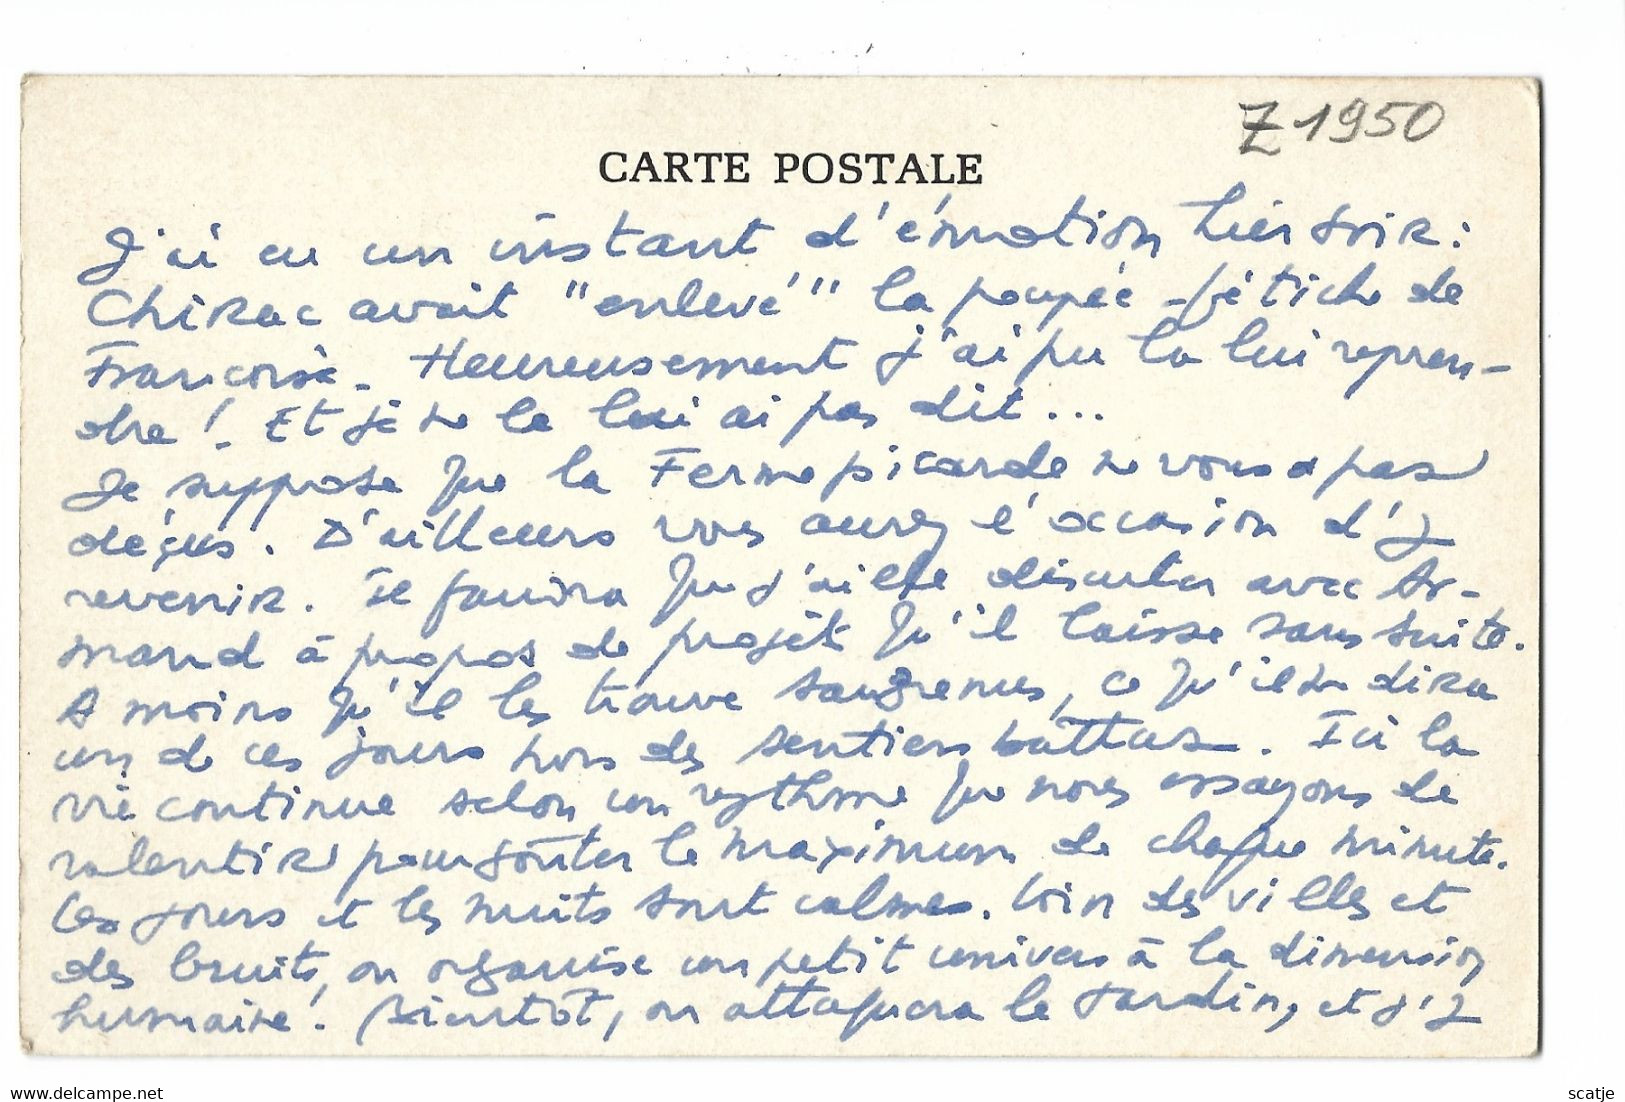 Z 1950
CARTE POSTALE
J'ai eu un instant d'émotion hier soir :
Chirac avait "enlevé" la poupée-fétiche de
Françoise. Heureusement j'ai pu la lui repren-
dre ! Et je ne le lui ai pas dit...
Je suppose que la Ferme picarde ne vous a pas
déçus. D'ailleurs vous aurez l'occasion d'y
revenir. Il faudra que j'aille discuter avec Ar-
mand à propos de projet qu'il laisse sans suite.
A moins qu'il les trouve saugrenus, ce qu'il dira
un de ces jours hors des sentiers battus. Ici la
vie continue selon un rythme que nous essayons de
ralentir pour goûter le maximum de chaque minute.
Les jours et les nuits sont calmes. Loin des villes et
des bruits, on organise un petit univers à la dimension
humaine ! Bientôt, on attaquera le jardin, et j'y
www.delcampe.net
scatje